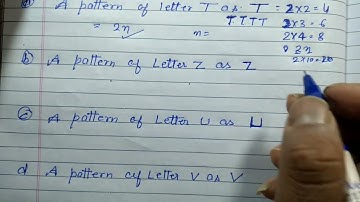 a) A pattern of letter T as T = 2x2=4
= 2n n= TTTT 2x3=6
2x4=8
2n
2x10=20
b) A pattern of Letter Z as Z
c) A pattern of Letter U as U
d) A pattern of Letter V as V